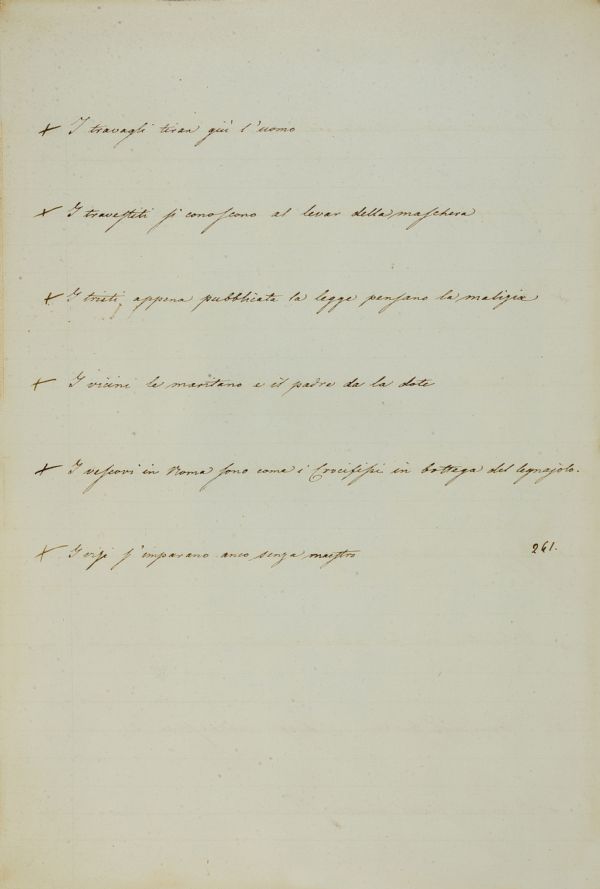 + I travagli tiran giù l'uomo
+ I travestiti si conoscono al levar della maschera
+ I tristi, appena pubblicata la legge pensano la malizia
+ I vicini le maritano e il padre da la dote
+ I vescovi in Roma sono come i Crocifissi in bottega del legnajolo.
+ I vizi s'imparano anco senza maestro 261.